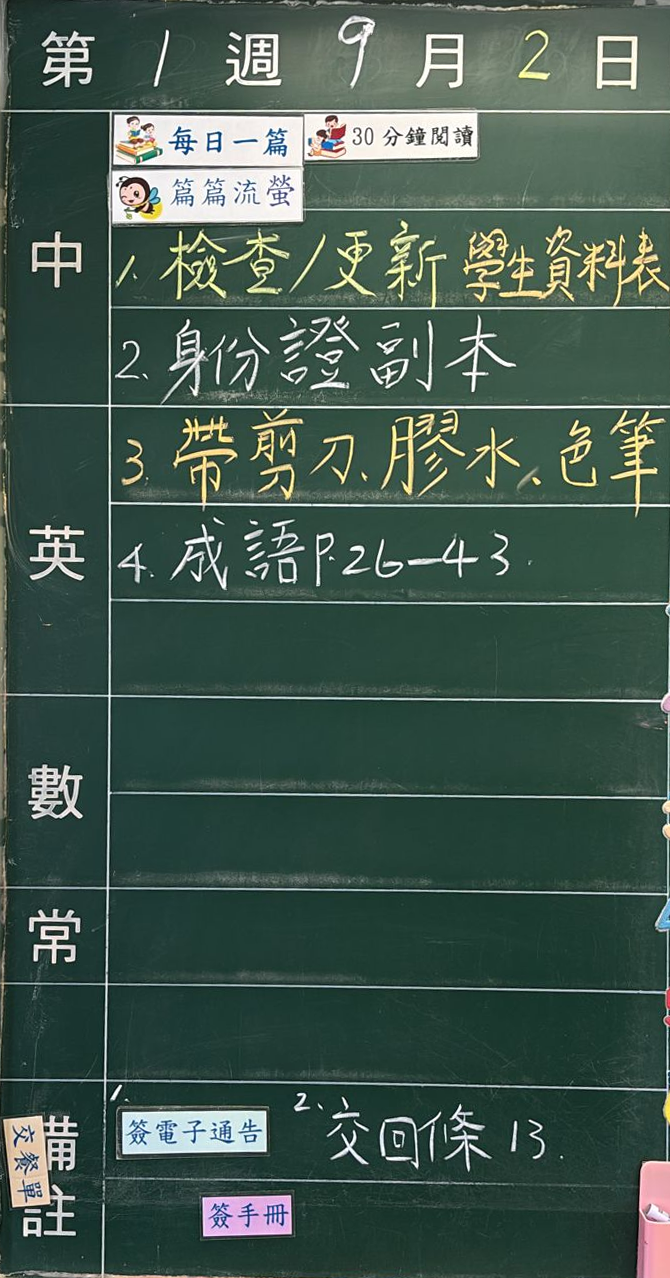 第 1 週 9 月 2 日
每日一篇 30分鐘閱讀
篇篇流螢
中
1. 檢查/更新 學生資料表
2. 身份證副本
3. 帶剪刀、膠水、色筆
英
4. 成語P.26-43.
數
常
備註
1. 簽電子通告 2. 交回條 13.
交餐單
簽手冊